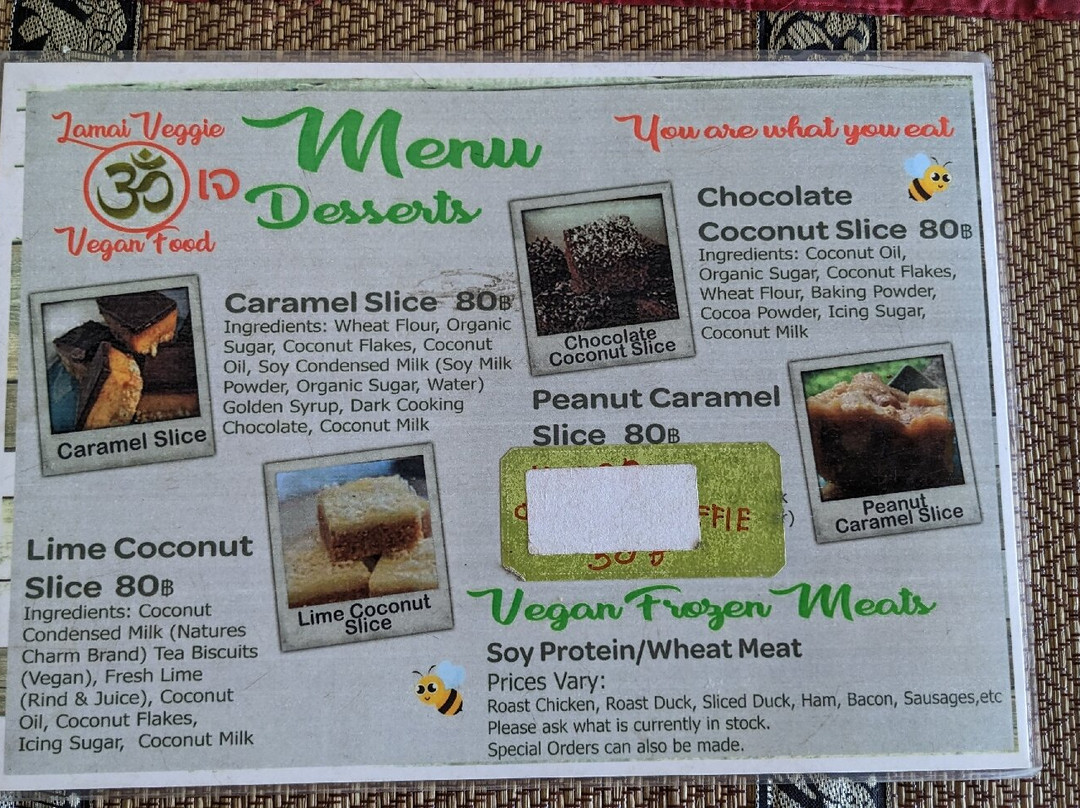 Lamai Veggie
ॐ เจ
Vegan Food
Menu
Desserts
You are what you eat
Caramel Slice 80฿
Ingredients: Wheat Flour, Organic
Sugar, Coconut Flakes, Coconut
Oil, Soy Condensed Milk (Soy Milk
Powder, Organic Sugar, Water)
Golden Syrup, Dark Cooking
Chocolate, Coconut Milk
Caramel Slice
Chocolate
Coconut Slice 80฿
Ingredients: Coconut Oil,
Organic Sugar, Coconut Flakes,
Wheat Flour, Baking Powder,
Cocoa Powder, Icing Sugar,
Coconut Milk
Chocolate
Coconut Slice
Peanut Caramel
Slice 80฿
Peanut
Caramel Slice
Lime Coconut
Slice 80฿
Ingredients: Coconut
Condensed Milk (Natures
Charm Brand) Tea Biscuits
(Vegan), Fresh Lime
(Rind & Juice), Coconut
Oil, Coconut Flakes,
Icing Sugar, Coconut Milk
Lime Coconut
Slice
Vegan Frozen Meats
Soy Protein/Wheat Meat
Prices Vary:
Roast Chicken, Roast Duck, Sliced Duck, Ham, Bacon, Sausages,etc
Please ask what is currently in stock.
Special Orders can also be made.